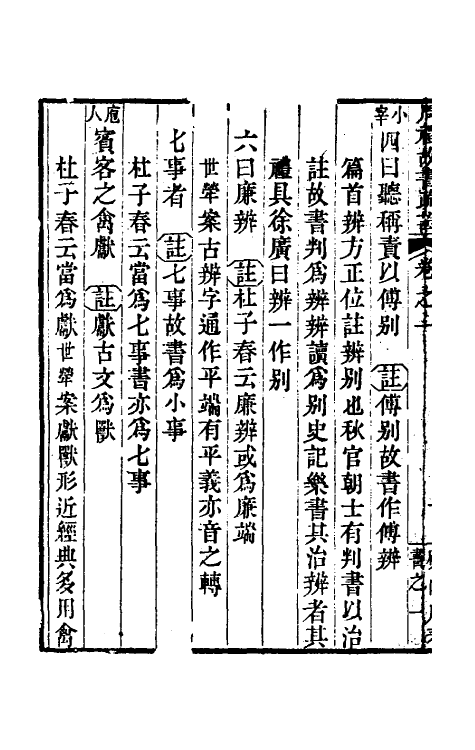 周禮故書疏證 卷之一
小宰 四曰聽稱責以傅别 註傅别故書作傅辨
篇首辨方正位註辨别也秋官朝士有判書以治
註故書判爲辨辨讀爲别史記樂書其治辨者其
禮具徐廣曰辨一作别
六曰廉辨 註杜子春云廉辨或爲廉端
世犖案古辨字通作平端有平義亦音之轉
七事者 註七事故書爲小事
杜子春云當爲七事書亦爲七事
庖人 賓客之禽獻 註獻古文爲獸
杜子春云當爲獻世犖案獻獸形近經典多用禽